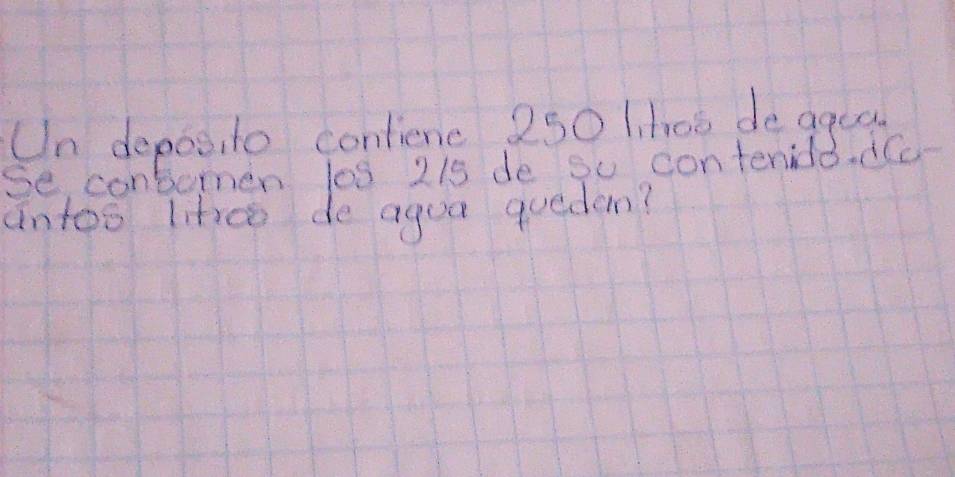 Un depósito contiene 250 litros de agua.
Se consumen los 2/5 de su contenido. ¿Cu-
antos litros de agua quedan?